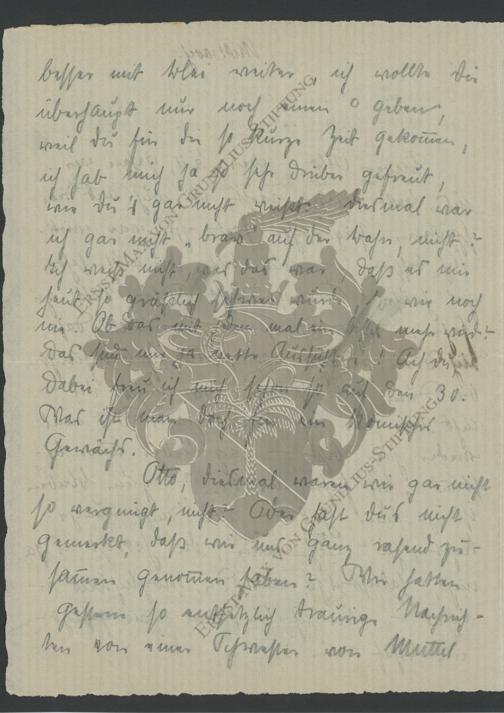 besser mit Blei weiter, ich wollte dir
überhaupt nur noch einen o geben,
weil du für die so kurze Zeit gekom̄en,
ich hab mich ja so sehr drüber gefreut,
wie du's gar nicht weißt. diesmal war
ich gar nicht „brav" auf der Bahn, nicht?
Ich weiß nicht, was das war, daß es mir
heut so gräßlich schwer wurde, wie noch
nie. Ob das mit dem mal mehr wird?
Das sind mir ja nette Aussichten! Ach du
dabei freu ich mich schon so auf den 30.
Was ist man doch für ein komisches
Gewächs.
Otto, diesmal waren wir gar nicht
so vergnügt, nicht? Oder hast du's nicht
gemerkt, daß wir uns ganz rasend zu-
sam̄en genom̄en haben? Wir hatten
gestern so entsetzlich traurige Nachrich-
ten von einer Schwester von Muttel
ERNST-MAX VON GRUNELIUS-STIFTUNG
ERNST-MAX VON GRUNELIUS-STIFTUNG